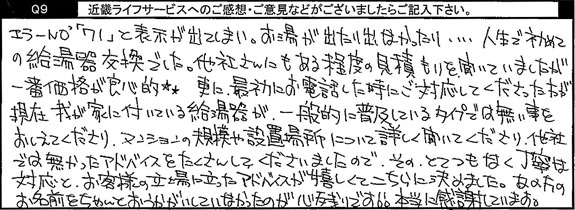 Q9 近畿ライフサービスへのご感想・ご意見などがございましたらご記入下さい。
エラーNO「711」と表示が出てしまい。お湯が出たり出なかったり・・・。人生で初めて
の給湯器交換でした。他社さんにもある程度の見積もりを聞いていましたが
一番価格が良心的★★ 更に、最初にお電話した時にご対応してくださった方が
現在我が家に付いている給湯器が、一般的に普及しているタイプでは無い事を
おしえてくださり、マンションの規模や設置場所について詳しく聞いてくださり、他社
では無かったアドバイスをたくさんしてくださいましたので、その、とてつもなく丁寧な
対応と、お客様の立場に立ったアドバイスが嬉しくてこちらに決めました。女の方の
お名前をちゃんとおうかがいしていなかったのが心残りです。本当に感謝しています。